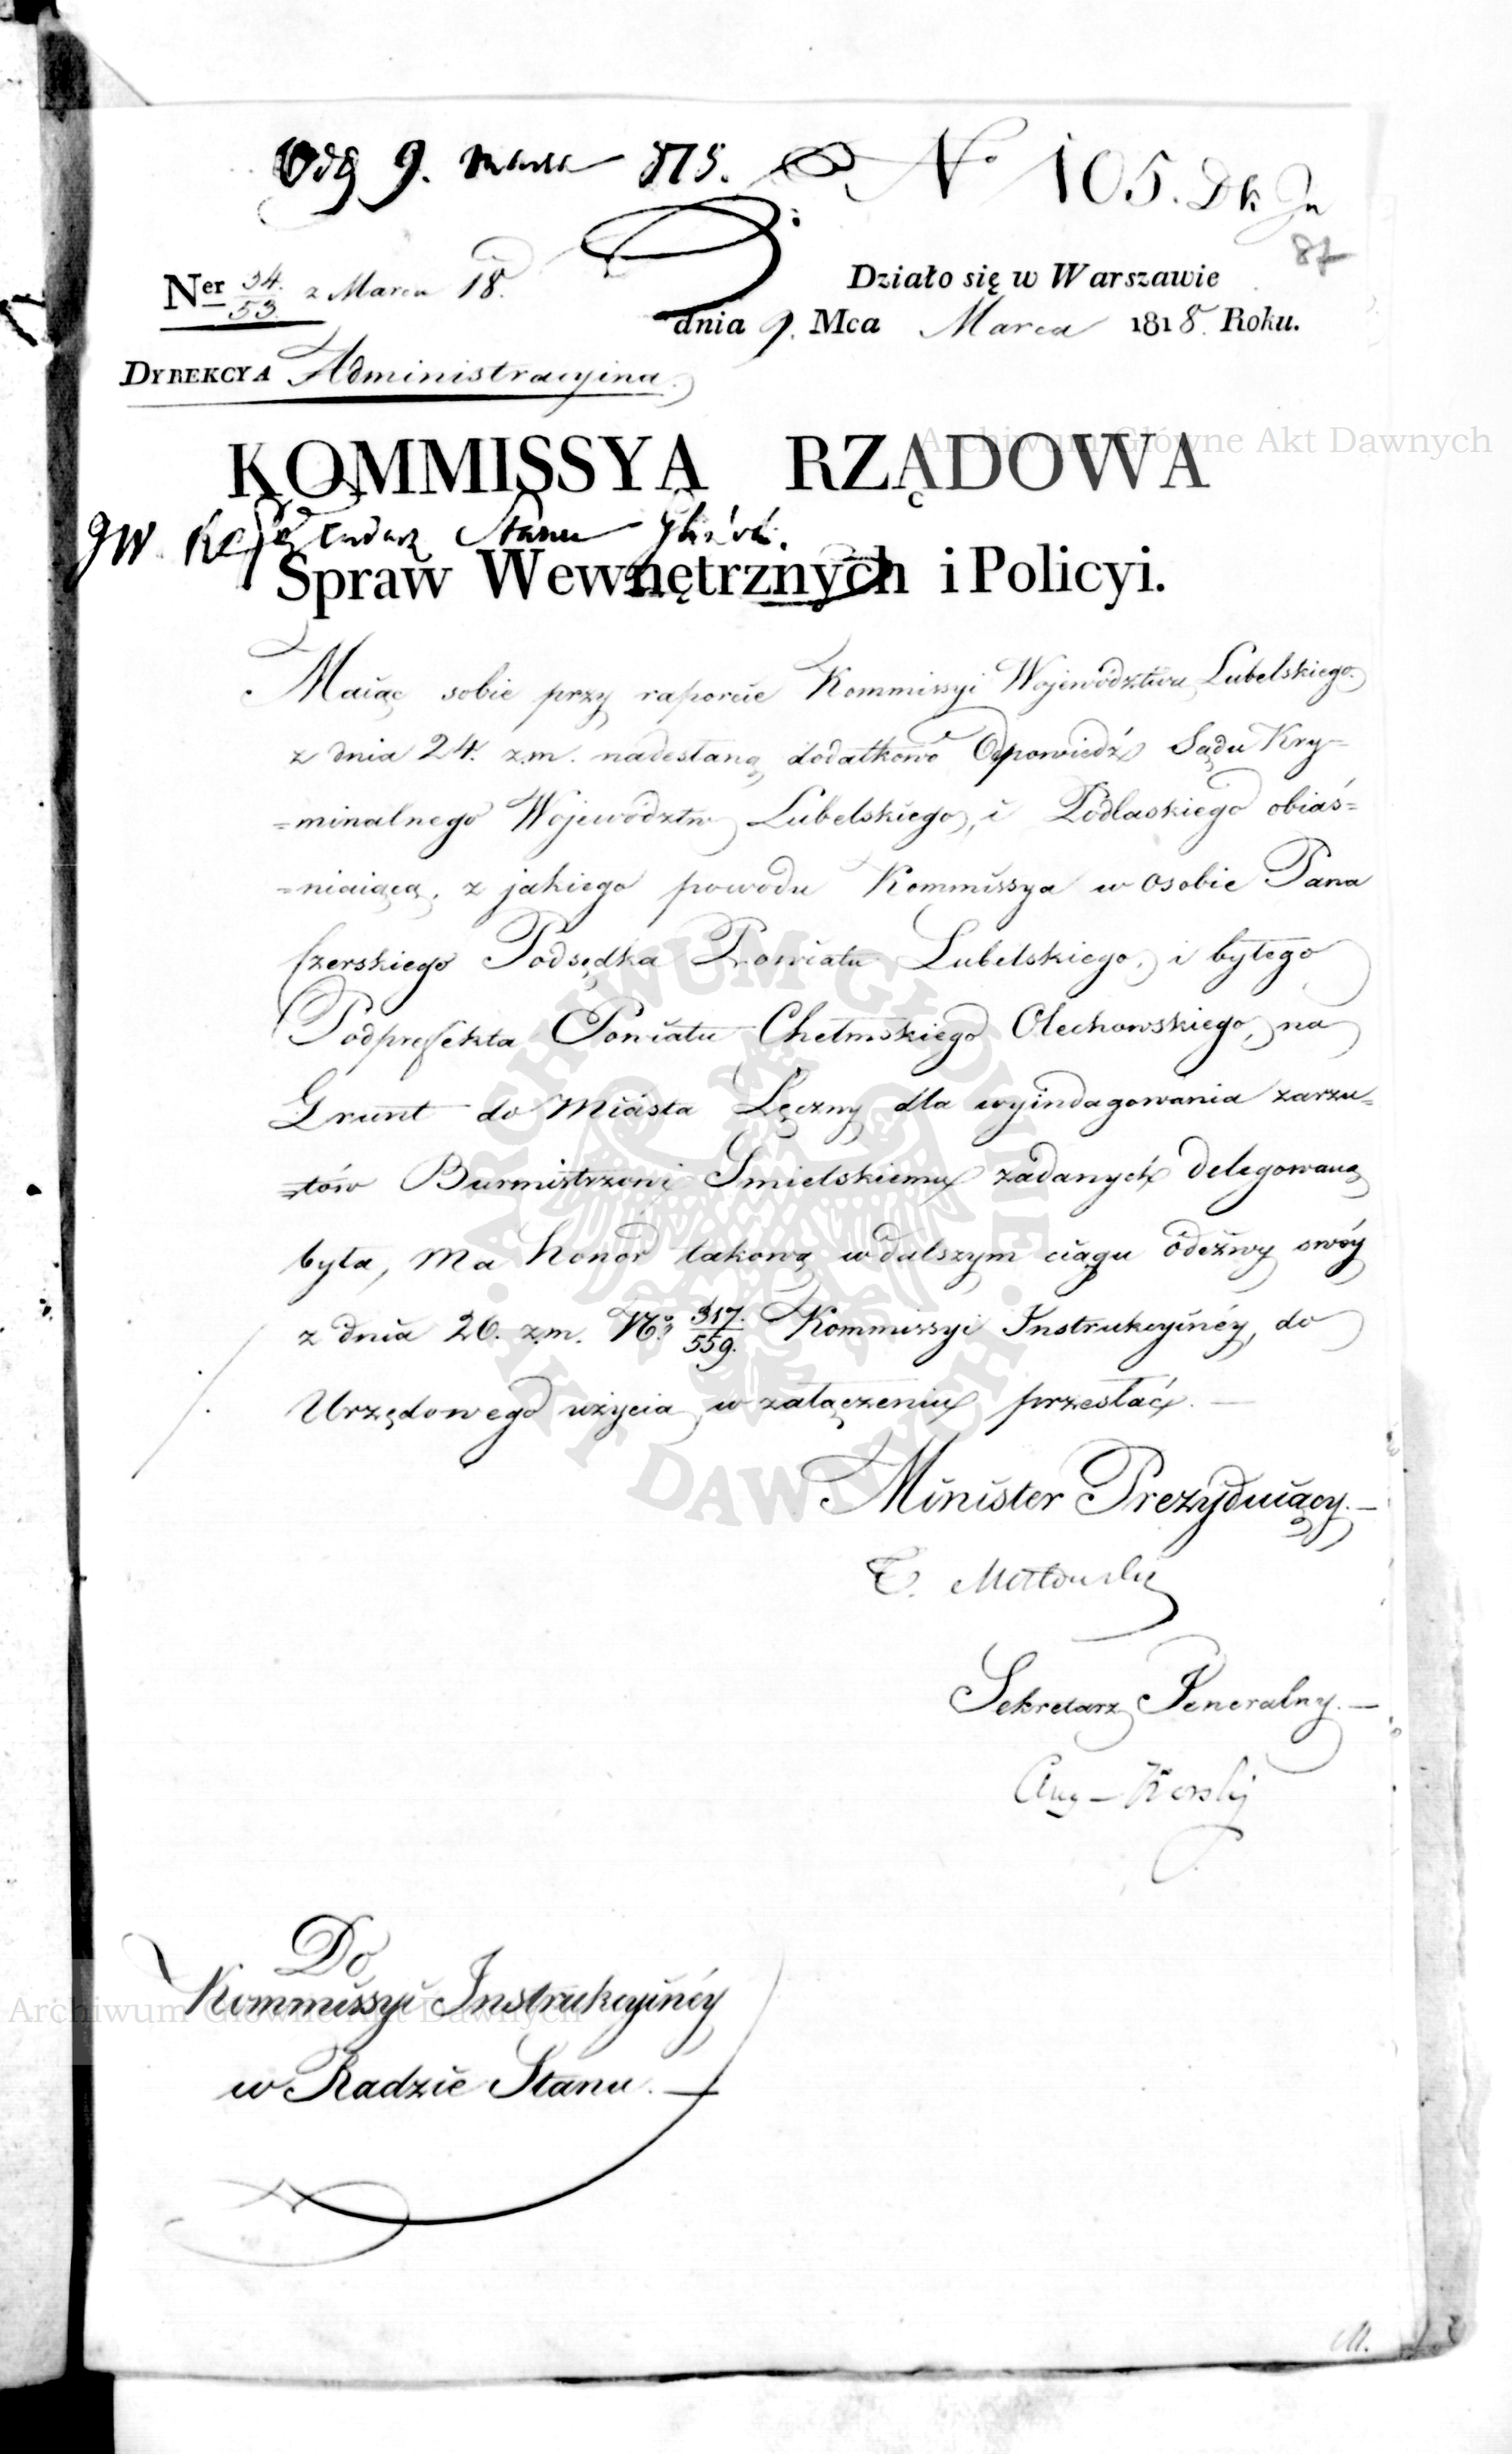 Odg 9. Marca 1818.
No 105. Dk In
87
Ner 34./53. z Marca 18.
Działo się w Warszawie
dnia 9. Mca Marca 1818. Roku.
DYREKCYA Administracyina.
KOMMISSYA RZĄDOWA
JW. Stanu
Spraw Wewnętrznych i Policyi.
Maiąc sobie przy raporcie Kommissyi Województwa Lubelskiego
z dnia 24. z.m. nadesłaną dodatkowo Odpowiedź Sądu Kry=
=minalnego Województw Lubelskiego, i Podlaskiego obiaś=
=niaiącą, z jakiego powodu Kommissya w osobie Pana
Czerskiego Podsędka Powiatu Lubelskiego, i byłego
Podprefekta Powiatu Chełmskiego Olechowskiego, na
Grunt do Miasta Łęczny dla wyindagowania zarzu=
=tów Burmistrzowi Smielskiemu zadanych delegowaną
była, Ma honor takową w dalszym ciągu odezwy swéy
z dnia 26. z.m. No 317./559. Kommissyi Instrukcyinéy, do
Urzędowego użycia w załączeniu przesłać. —
Minister Prezyduiący. —
T. Mostowski
Sekretarz Generalny. —
Aug – Karski
Do
Kommissyi Instrukcyinéy
w Radzie Stanu. —
M.
Archiwum Główne Akt Dawnych
Archiwum Główne Akt Dawnych
ARCHIWUM GŁÓWNE · AKT DAWNYCH ·